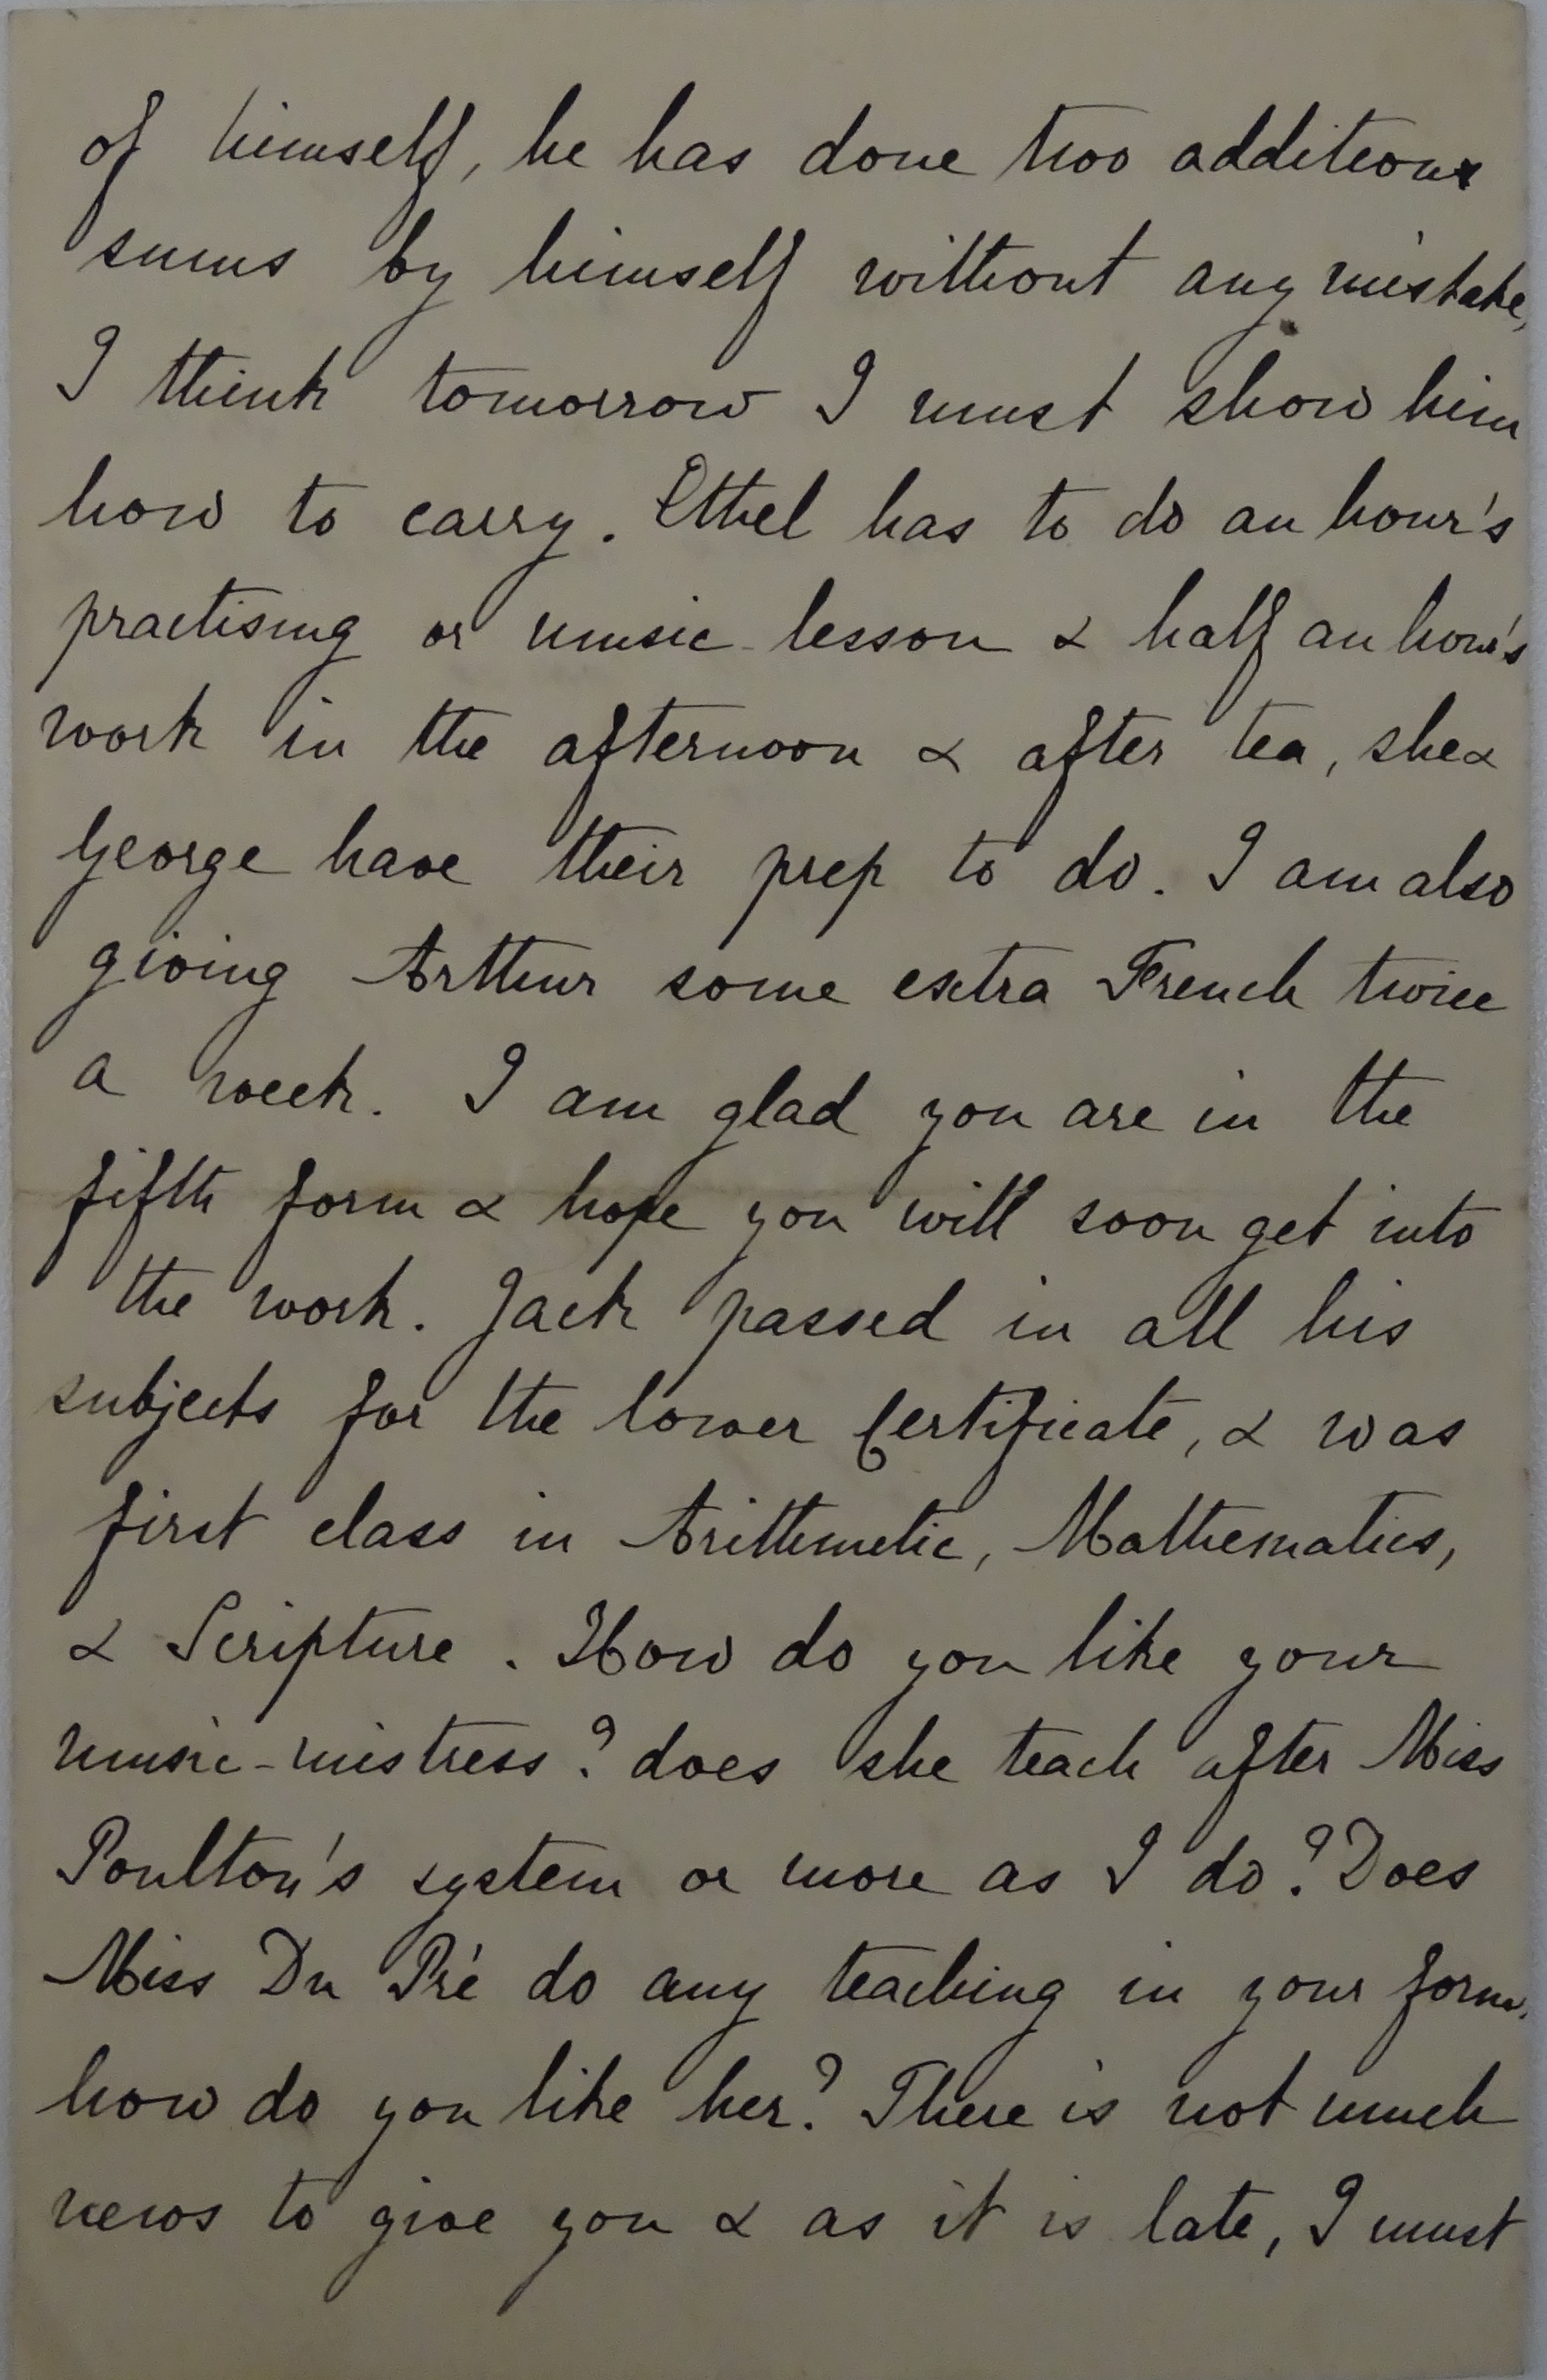 of himself, he has done two addition
sums by himself without any mistake,
I think tomorrow I must show him
how to carry. Ethel has to do an hour's
practising or music-lesson & half an hour's
work in the afternoon & after tea, she &
George have their prep to do. I am also
giving Arthur some extra French twice
a week. I am glad you are in the
fifth form & hope you will soon get into
the work. Jack passed in all his
subjects for the lower Certificate, & was
first class in Arithmetic, Mathematics,
& Scripture. How do you like your
music-mistress? does she teach after Miss
Poulton's system or more as I do? Does
Miss Du Pré do any teaching in your form,
how do you like her? There is not much
news to give you & as it is late, I must